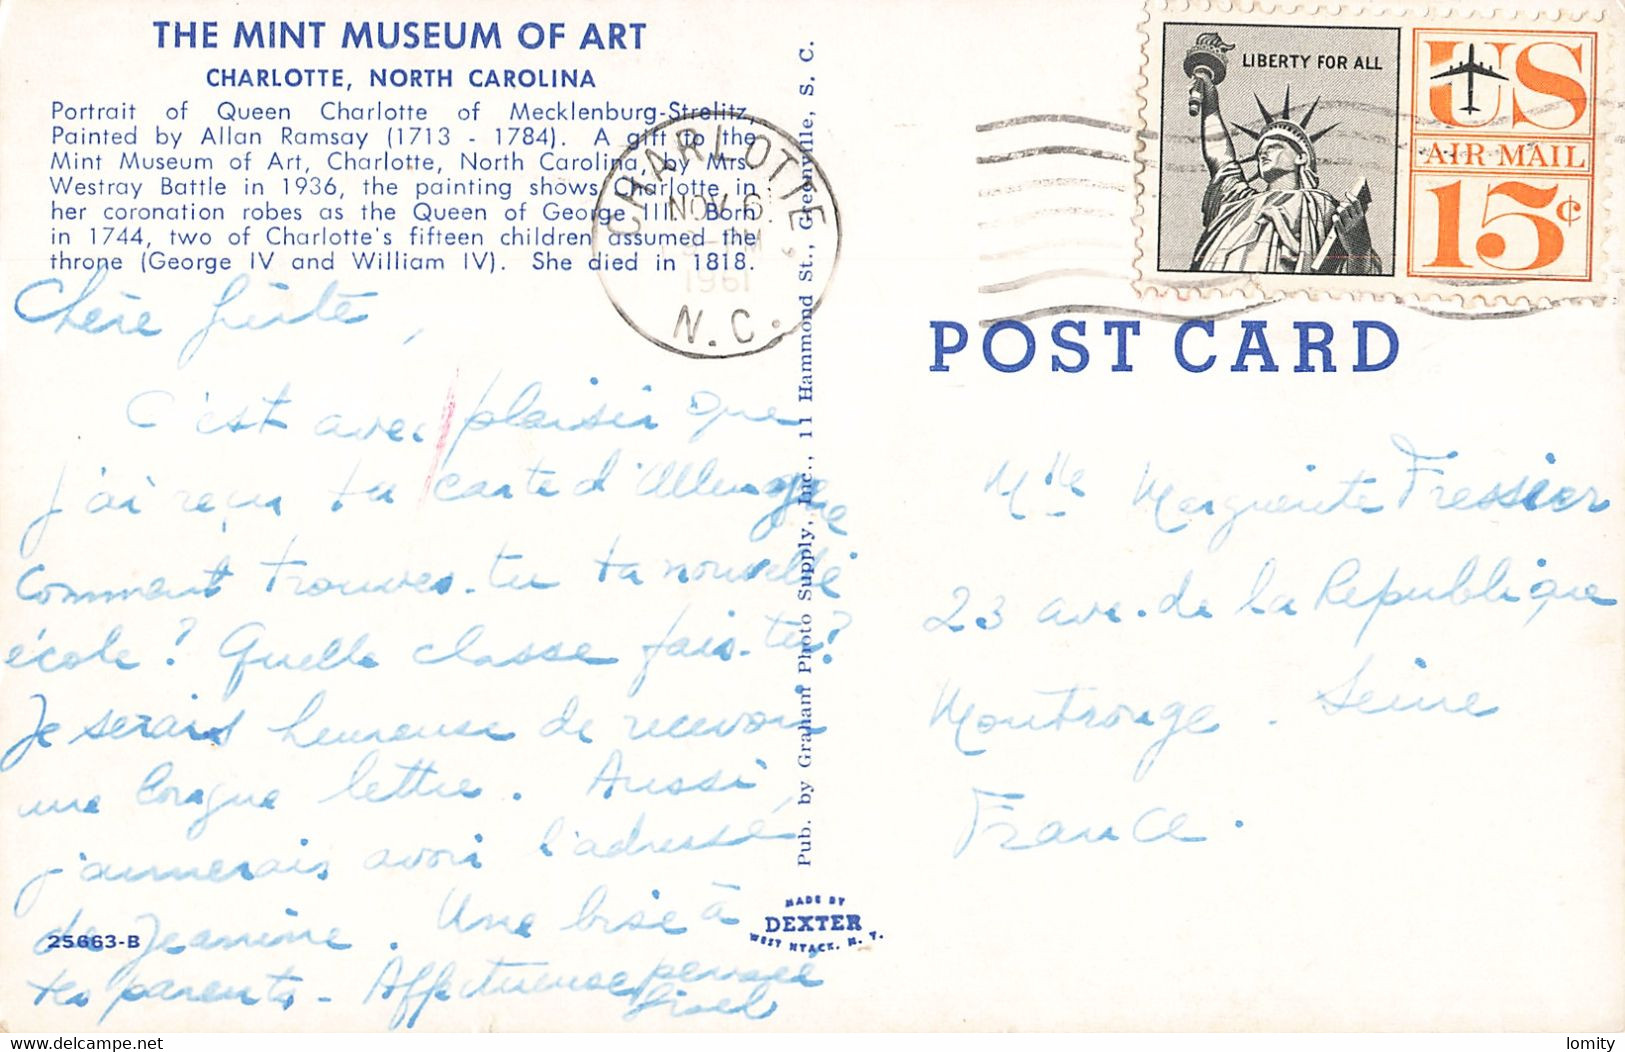 THE MINT MUSEUM OF ART
CHARLOTTE, NORTH CAROLINA
Portrait of Queen Charlotte of Mecklenburg-Strelitz,
Painted by Allan Ramsay (1713 - 1784). A gift to the
Mint Museum of Art, Charlotte, North Carolina, by Mrs.
Westray Battle in 1936, the painting shows Charlotte in
her coronation robes as the Queen of George III. Born
in 1744, two of Charlotte's fifteen children assumed the
throne (George IV and William IV). She died in 1818.
Chère
C'est avec plaisir que
j'ai reçu ta carte d'Allemagne
Comment trouves-tu ta nouvelle
école ? Quelle classe fais-tu ?
Je serais heureuse de recevoir
une longue lettre. Aussi,
j'aimerais avoir l'adresse
de Jeanine. Une bise à
tes parents - Affectueuse pensée
25663-B
CHARLOTTE,
NOV 6
PM
1961
N.C.
Pub. by Graham Photo Supply, Inc., 11 Hammond St., Greenville, S. C.
MADE BY
DEXTER
WEST NYACK, N. Y.
LIBERTY FOR ALL
US
AIR MAIL
15¢
POST CARD
Mlle Marguerite Fressier
23 ave. de la République
Montrouge - Seine
France.
delcampe.net
lomity